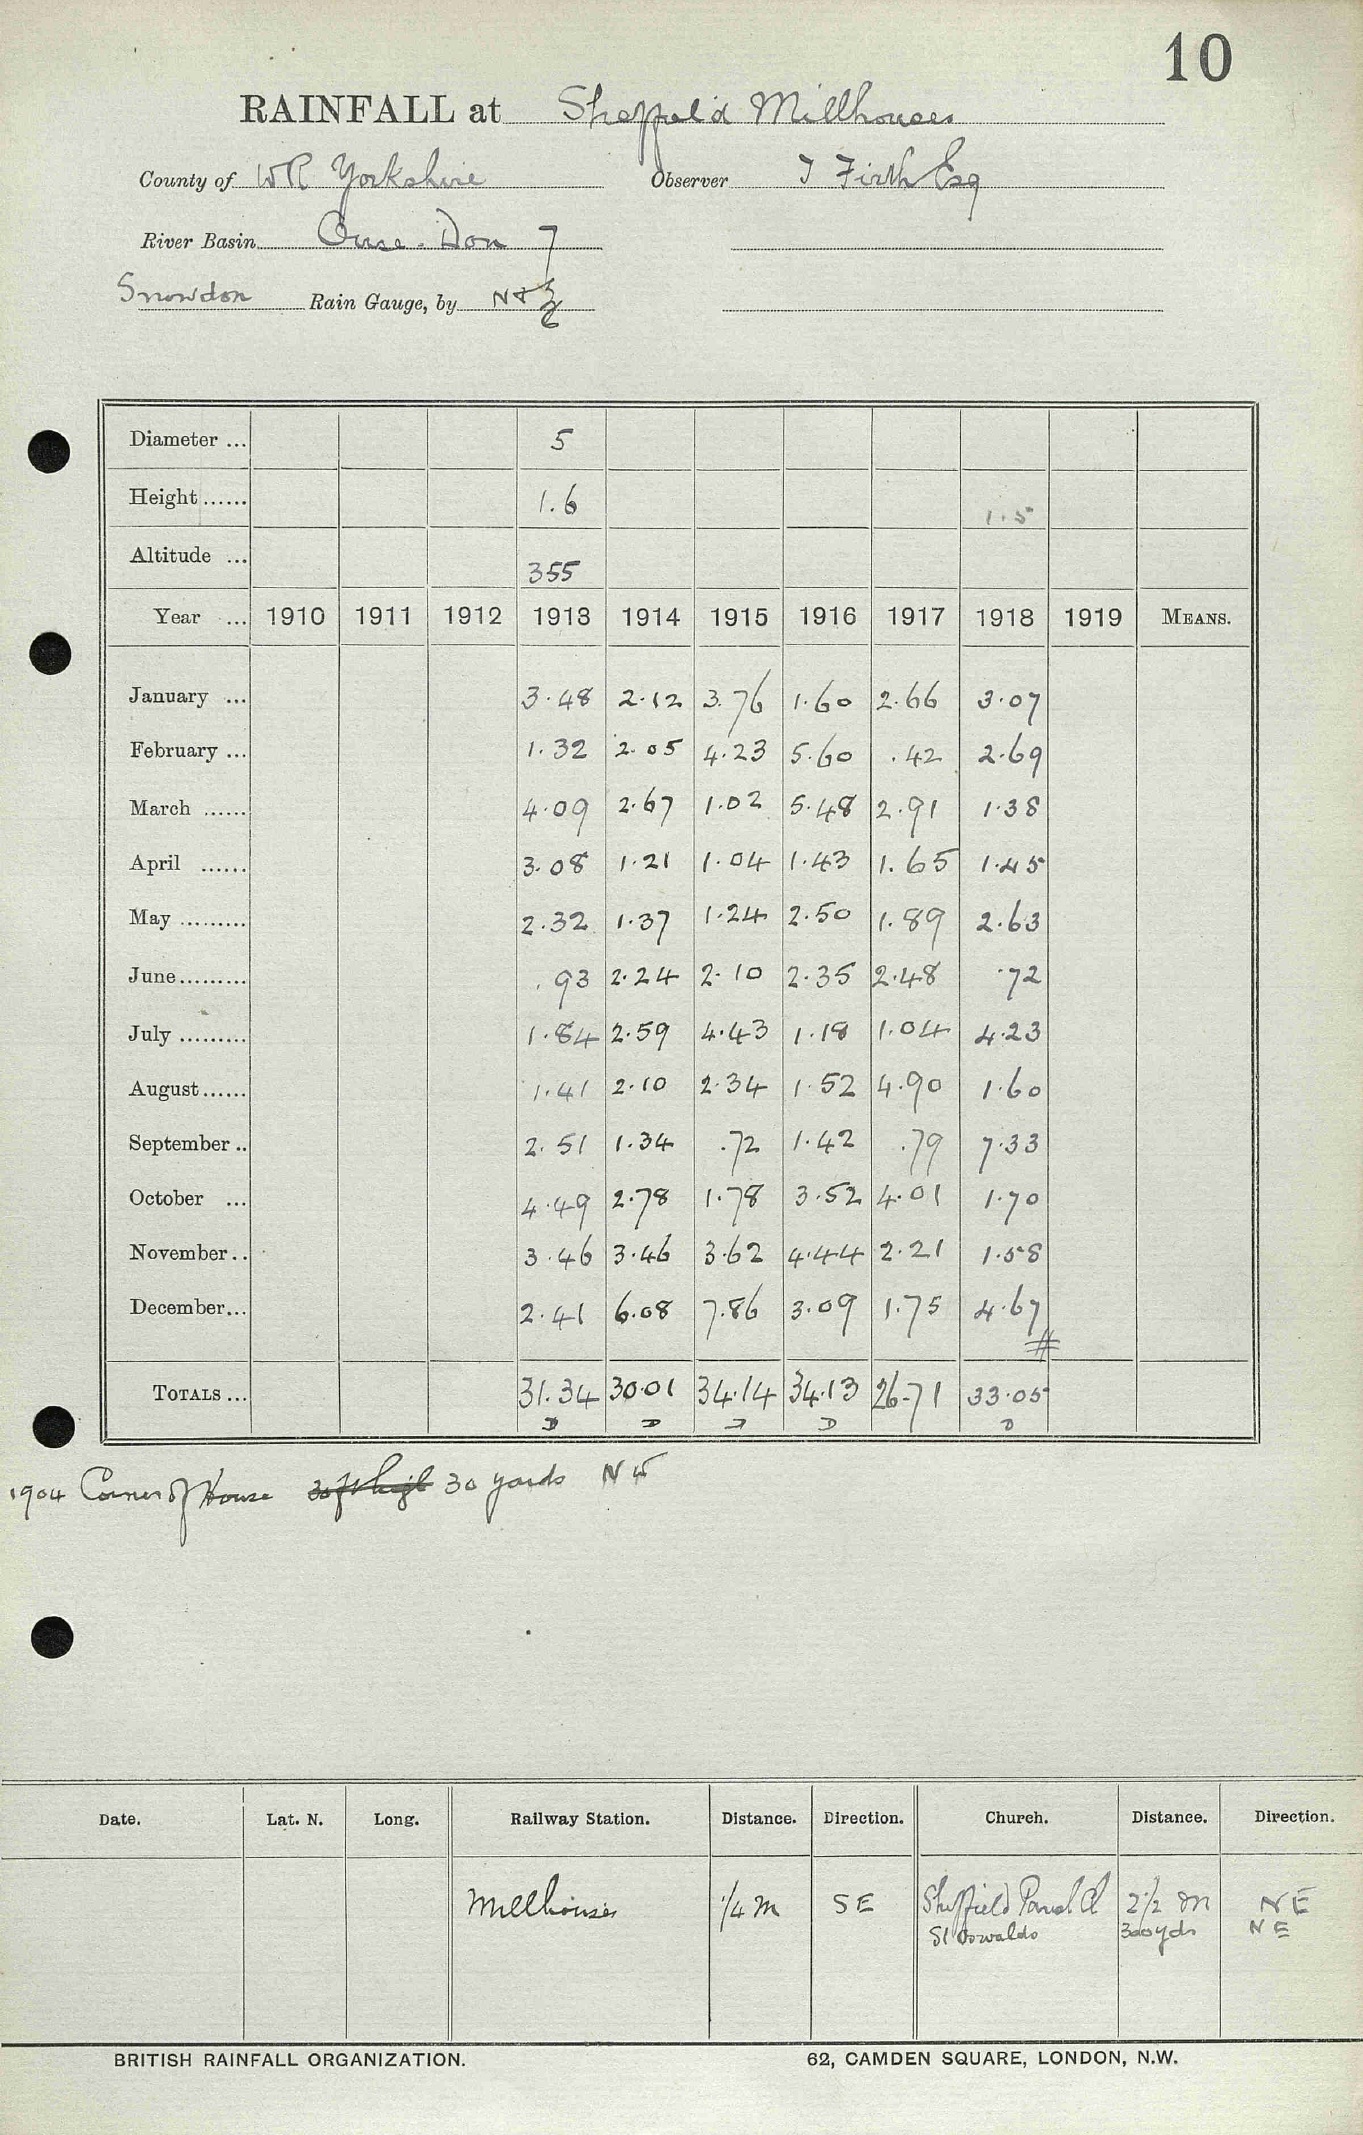 10
RAINFALL at Sheffield Millhouses
County of WR Yorkshire Observer T Firth Esq
River Basin Ouse - Don 7
Snowdon Rain Gauge, by N & Z
Diameter ... 5
Height ...... 1.6 1.5
Altitude ... 355
Year ... 1910 1911 1912 1913 1914 1915 1916 1917 1918 1919 MEANS.
January ... 3.48 2.12 3.76 1.60 2.66 3.07
February ... 1.32 2.05 4.23 5.60 .42 2.69
March ...... 4.09 2.67 1.02 5.48 2.91 1.38
April ...... 3.08 1.21 1.04 1.43 1.65 1.45
May ......... 2.32 1.37 1.24 2.50 1.89 2.63
June ......... .93 2.24 2.10 2.35 2.48 .72
July ......... 1.84 2.59 4.43 1.18 1.04 4.23
August ...... 1.41 2.10 2.34 1.52 4.90 1.60
September .. 2.51 1.34 .72 1.42 .79 7.33
October ... 4.49 2.78 1.78 3.52 4.01 1.70
November .. 3.46 3.46 3.62 4.44 2.21 1.58
December ... 2.41 6.08 7.86 3.09 1.75 4.67
TOTALS ... 31.34 30.01 34.14 34.13 26.71 33.05
D D D D D
1904 Corner of House 30 ft high 30 yards NW
Date. Lat. N. Long. Railway Station. Distance. Direction. Church. Distance. Direction.
Millhouses 1/4 m SE Sheffield Parish Ch 2 1/2 m NE
St Oswalds 300 yds NE
BRITISH RAINFALL ORGANIZATION. 62, CAMDEN SQUARE, LONDON, N.W.